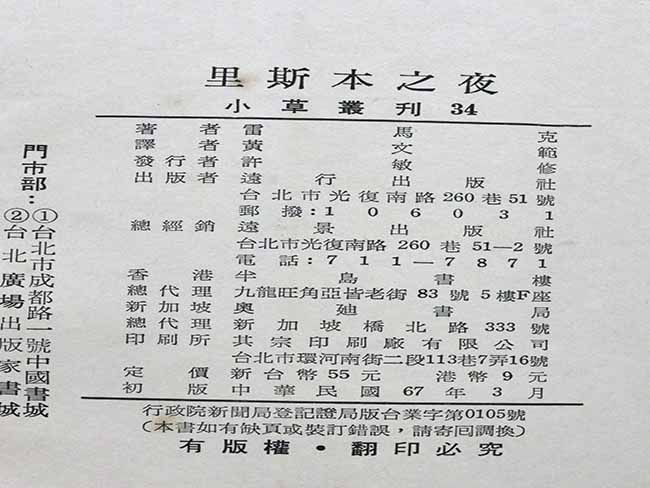 里斯本之夜
小草叢刊 34
著者 雷馬克
譯者 黃文範
發行者 許敏修
出版者 遠行出版社
台北市光復南路260巷51號
郵撥:106031
總經銷 遠景出版社
台北市光復南路260巷51—2號
電話:711—7871
香港 半島書樓
總代理 九龍旺角亞皆老街83號5樓F座
新加坡 奧迪書局
總代理 新加坡橋北路333號
印刷所 其宗印刷廠有限公司
台北市環河南街二段113巷7弄16號
定價 新台幣55元 港幣9元
初版 中華民國67年3月
行政院新聞局登記證局版台業字第0105號
(本書如有缺頁或裝訂錯誤,請寄回調換)
有版權・翻印必究
門市部:①台北市成都路一號中國書城
②台北廣場出版家書城